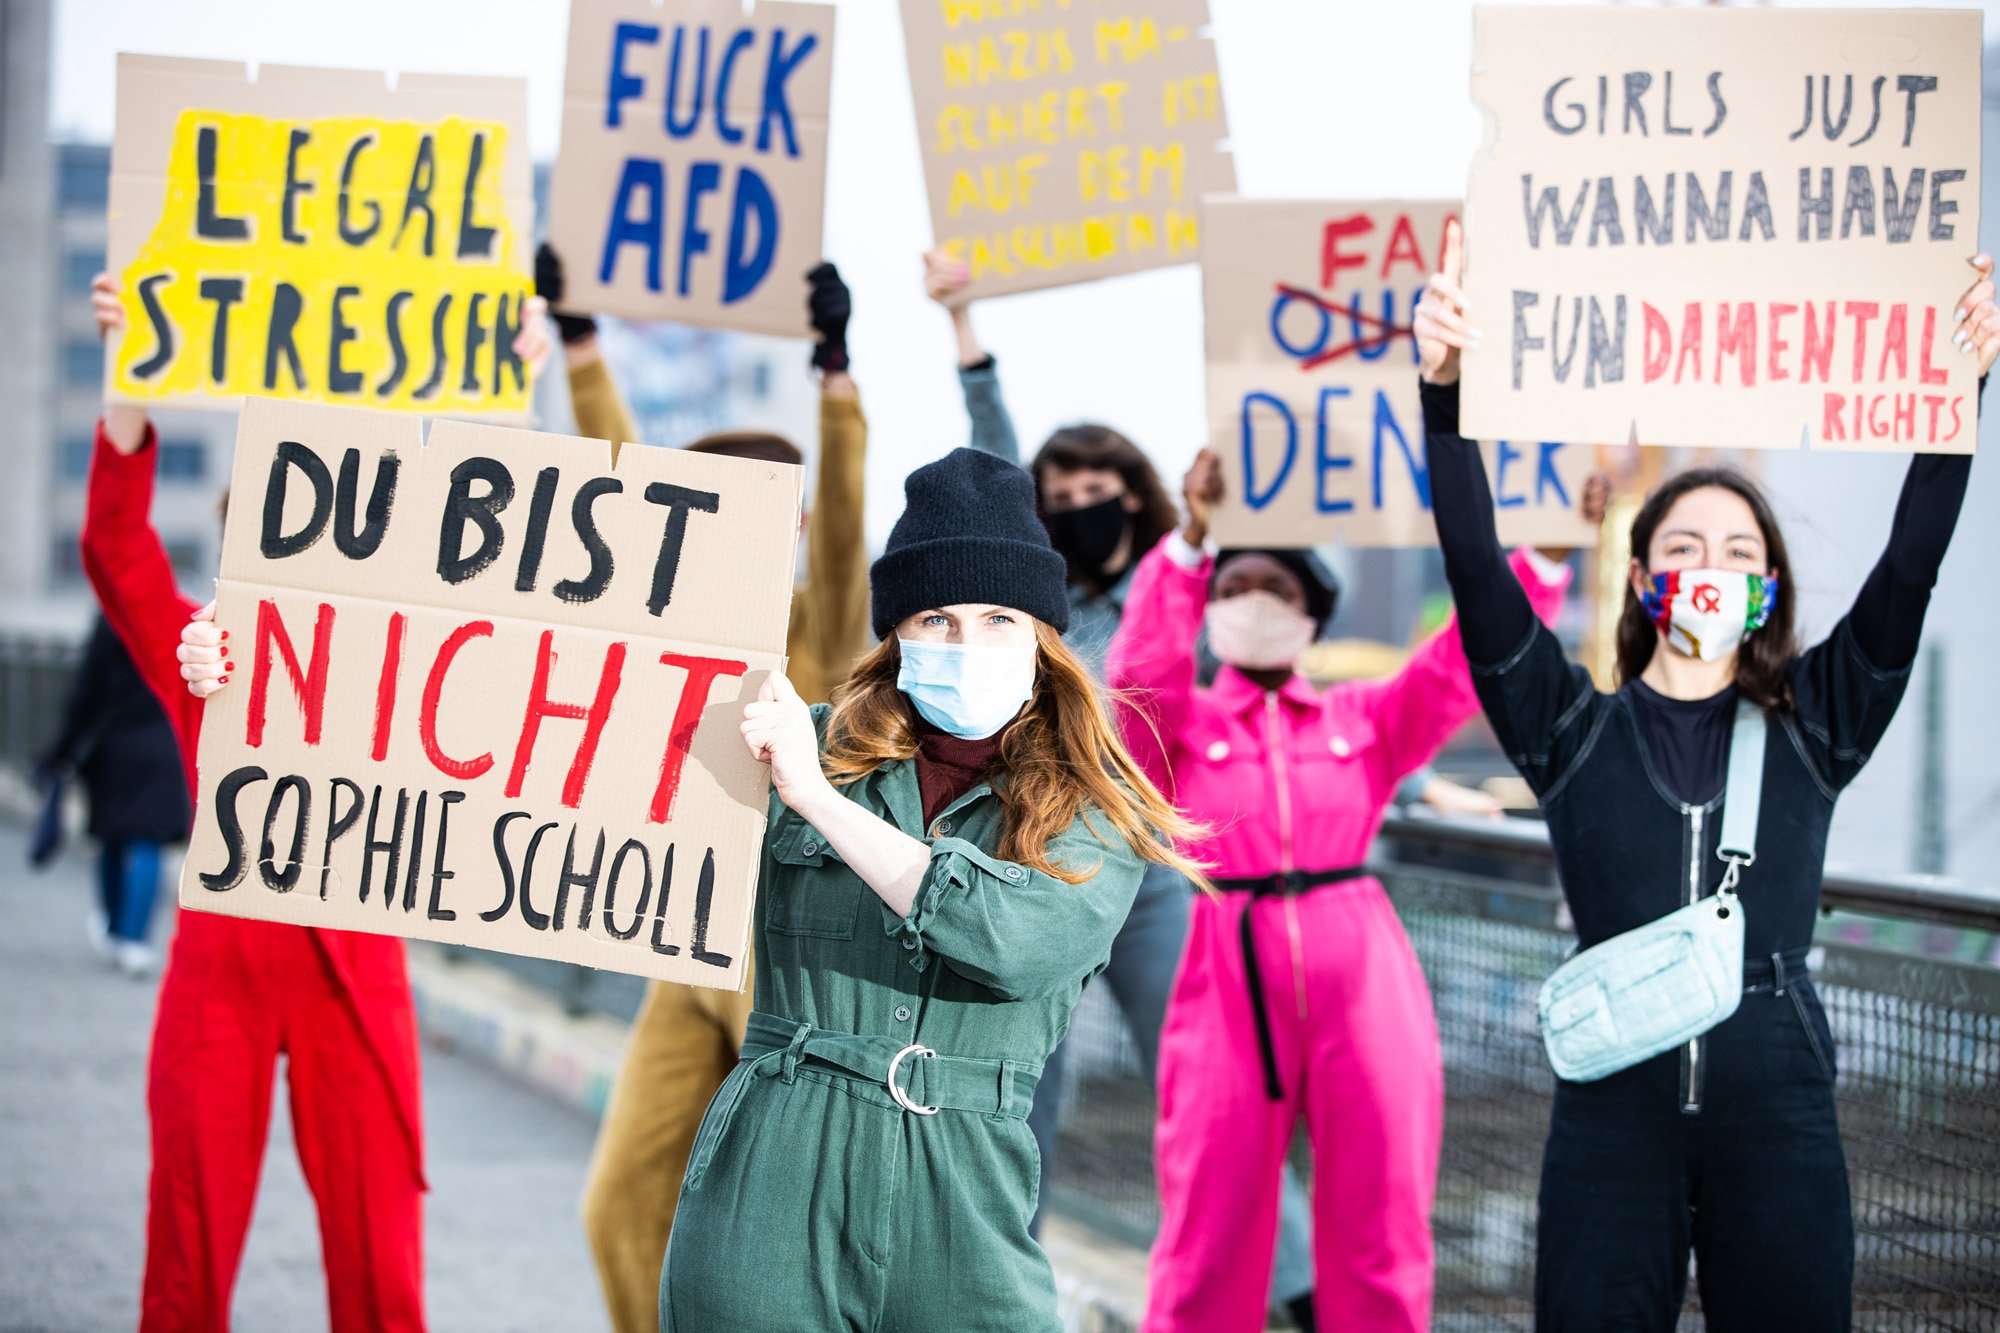 LEGAL
STRESSEN
FUCK
AFD
NAZIS MA-
SCHIERT IST
AUF DEM
GIRLS JUST
WANNA HAVE
FUNDAMENTAL
RIGHTS
DU BIST
NICHT
SOPHIE SCHOLL